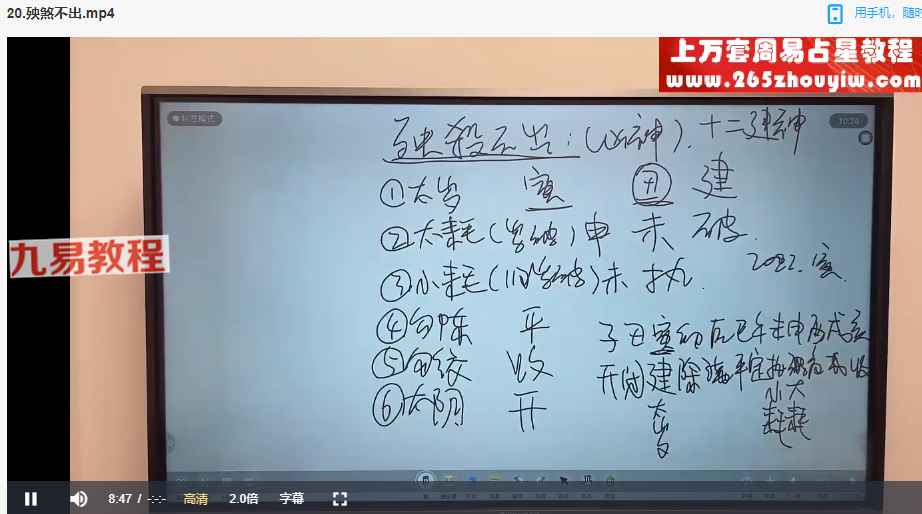 20.殃煞不出.mp4
用手机，随时
上万套周易占星教程
www.265zhouyiw.com
九易教程
殃殺不出：(凶神)．十二建神
10:24
①太岁 寅 丑 建
②大耗(岁破)申 未 破．
2022．寅
③小耗(小岁破)未 执．
④勾陈 平
子丑寅卯辰巳午未申酉戌亥
⑤勾绞 收
开闭建除满平定执破危成收
⑥太阴 开
太岁
小耗
大耗
8:47 / -:-:-
高清
2.0倍
字幕